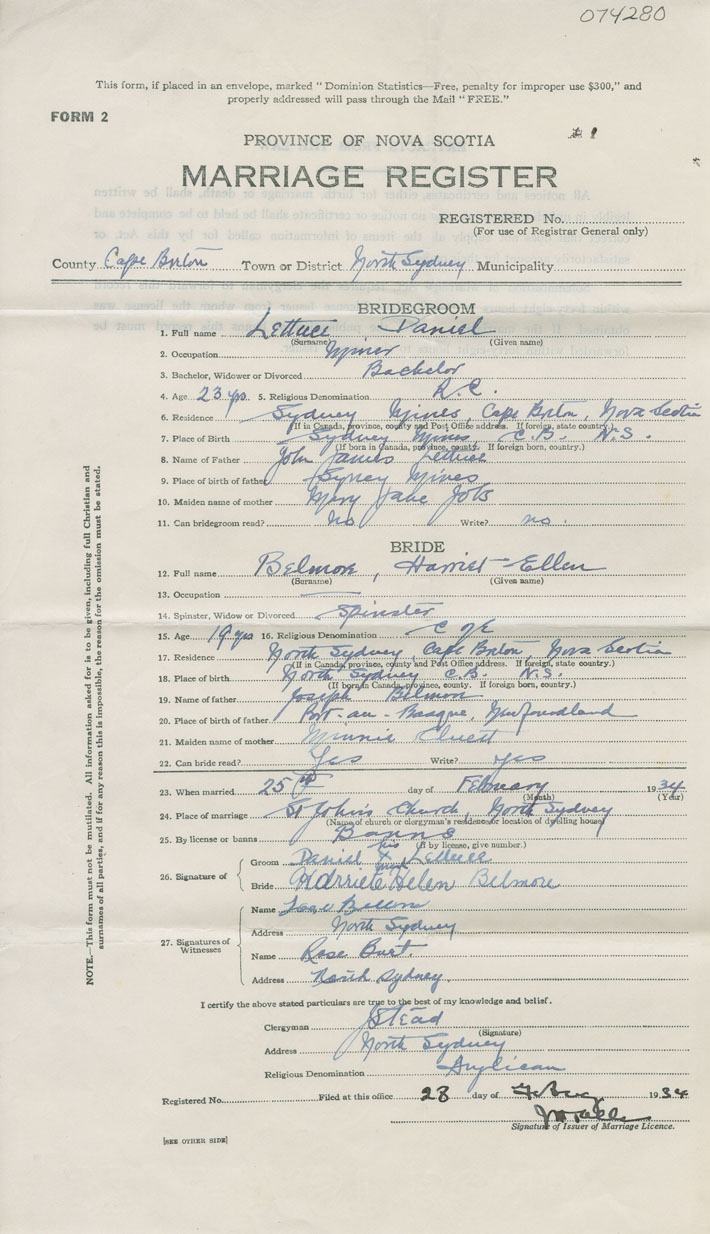 074280
This form, if placed in an envelope, marked "Dominion Statistics—Free, penalty for improper use $300," and
properly addressed will pass through the Mail "FREE."
FORM 2
PROVINCE OF NOVA SCOTIA
# 1
MARRIAGE REGISTER
REGISTERED No.
(For use of Registrar General only)
County Cape Breton Town or District North Sydney Municipality
BRIDEGROOM
1. Full name Lettuce Daniel
(Surname) (Given name)
2. Occupation Miner
3. Bachelor, Widower or Divorced Bachelor
4. Age 23 yrs. 5. Religious Denomination R.C.
6. Residence Sydney Mines, Cape Breton, Nova Scotia
(If in Canada, province, county and Post Office address. If foreign, state country.)
7. Place of Birth Sydney Mines C.B. N.S.
(If born in Canada, province, county. If foreign born, country.)
8. Name of Father John James Lettuce
9. Place of birth of father Sydney Mines
10. Maiden name of mother Mary Jane
11. Can bridegroom read? No Write? no.
BRIDE
12. Full name Belmore, Harriet Ellen
(Surname) (Given name)
13. Occupation
14. Spinster, Widow or Divorced Spinster
15. Age 19 yrs 16. Religious Denomination C of E
17. Residence North Sydney, Cape Breton, Nova Scotia
(If in Canada, province, county and Post Office address. If foreign, state country.)
18. Place of birth North Sydney C.B. N.S.
(If born in Canada, province, county. If foreign born, country.)
19. Name of father Joseph Belmore
20. Place of birth of father Port-au-Basque, Newfoundland
21. Maiden name of mother Minnie
22. Can bride read? Yes Write? Yes
23. When married 25th day of February 1934
(Month) (Year)
24. Place of marriage St John's Church, North Sydney
(Name of church or clergyman's residence or location of dwelling house)
25. By license or banns Banns
(If by license, give number.)
26. Signature of
Groom Daniel his X mark Lettuce
Bride Harriete Helen Belmore
27. Signatures of Witnesses
Name
Address North Sydney
Name Rose
Address North Sydney.
I certify the above stated particulars are true to the best of my knowledge and belief.
Clergyman Stead
(Signature)
Address North Sydney
Religious Denomination Anglican
Registered No. Filed at this office 28 day of 1934
Signature of Issuer of Marriage Licence.
[SEE OTHER SIDE]
NOTE.—This form must not be mutilated. All information asked for is to be given, including full Christian and
surnames of all parties, and if for any reason this is impossible, the reason for the omission must be stated.